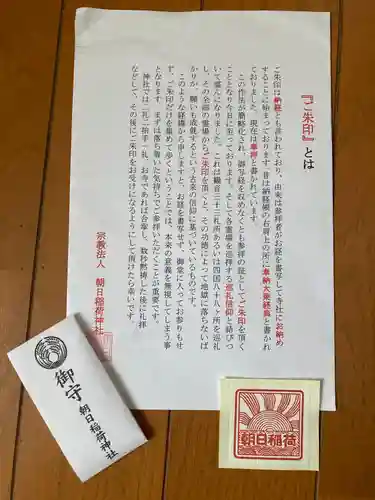 『ご朱印』とは
ご朱印は納経とも言われており、由来は参拝者がお経を書写して寺社にお納め
することに始まっております。昔は納経帳の右肩上の所に奉納大乗経典と書かれ
ておりましたが、現在は奉拝と書かれています。
この作法が簡略化され、御写経を収めなくとも参拝の証としてご朱印を頂く
こととなり今日に至っております。そして各霊場を巡拝する巡礼信仰と結びつ
いて盛んになりました。これは観音三十三札所あるいは四国八十八ヶ所を巡礼
し、その全部の霊場からご朱印を頂くと、その功徳によって地獄に落ちないば
かりか、願いも成就するという古来の信仰に基づいているものです。
このような経緯から申しますと、お経を書写せず、御堂に入ってお参りもせ
ず、ご朱印だけを集めて歩くということは、本来の意義を無視してしまう事
となります。まずは落ち着いた気持ちでご参拝いただくことが重要です。
神社では二礼二拍手一礼、お寺であれば合掌し、数秒黙祷した後に礼拝
などして、その後にご朱印をお受けになるようにして頂けたら幸いです。
宗教法人 朝日稲荷神社
御守 朝日稲荷神社
朝日稲荷